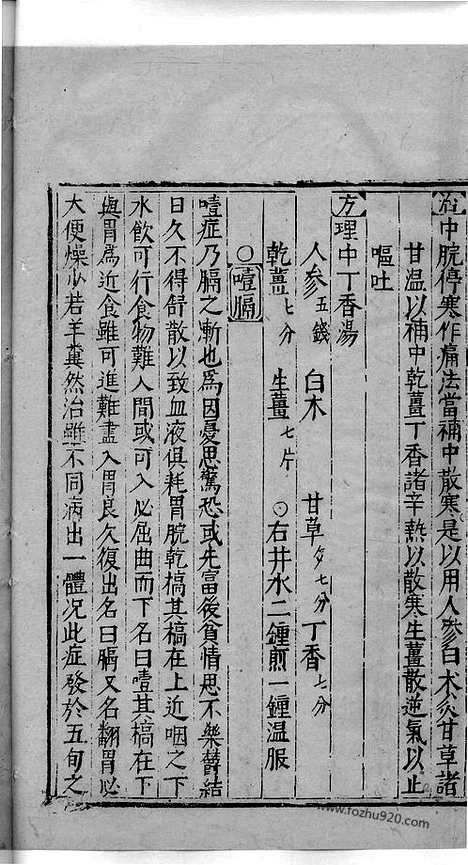 治中脘停寒作痛法當補中散寒是以用人參白术炙甘草諸
甘温以補中乾薑丁香諸辛熱以散寒生薑散逆氣以止
嘔吐
方理中丁香湯
人參五錢 白术 甘草夕七分 丁香七分
乾薑七分 生薑七片 ○右井水二鍾煎一鍾温服
○噎膈
噎症乃膈之漸也為因憂思驚恐或先富後貧情思不樂欝結
日久不得舒散以致血液俱耗胃脘乾槁其槁在上近咽之下
水飲可行食物難入間或可入必屈曲而下名曰噎其槁在下
與胃為近食雖可進難盡入胃良久復出名曰膈又名翻胃必
大便燥少若羊糞然治雖不同病出一體况此症發於五旬之
www.fozhu920.com